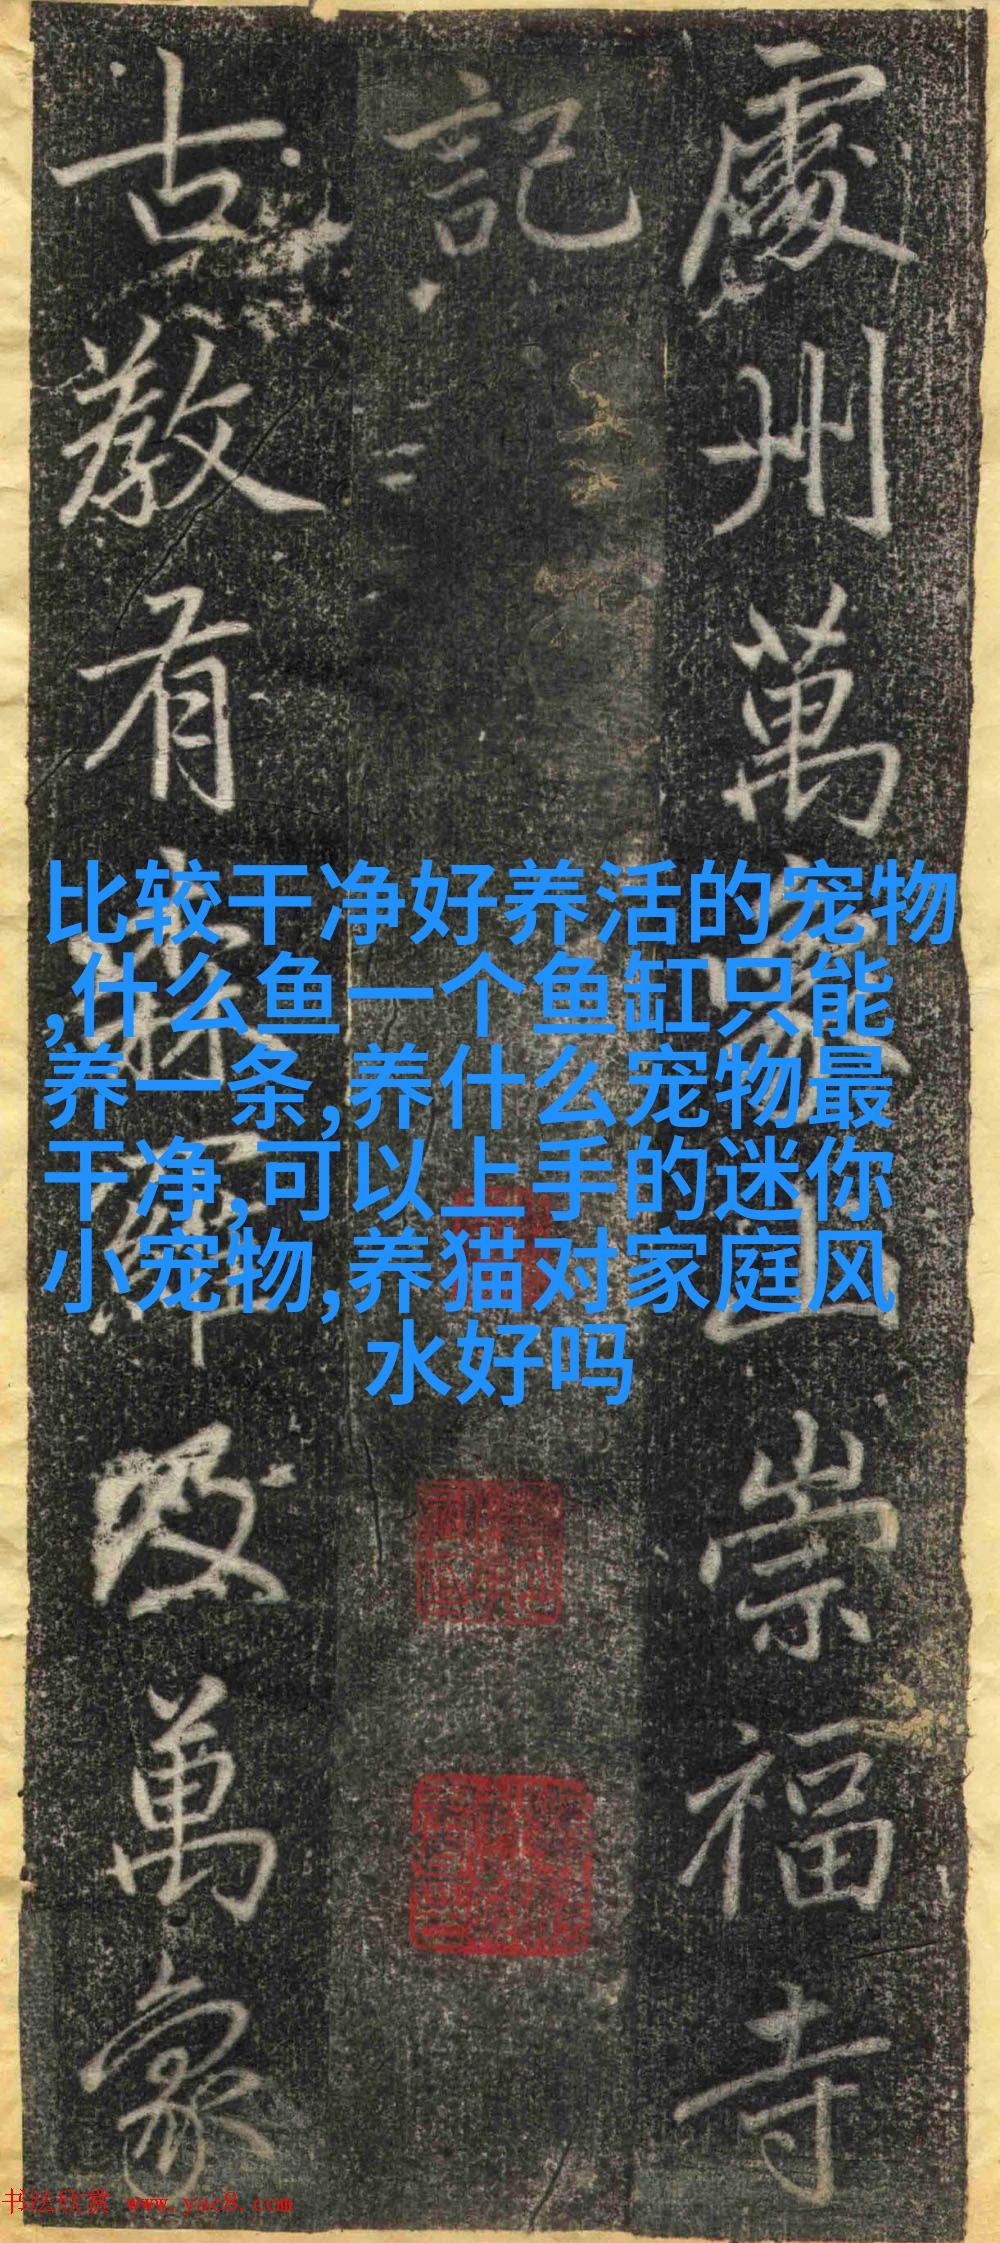 處州萬象山崇福寺
記
古教有
萬象
比较干净好养活的宠物
,什么鱼一个鱼缸只能
养一条,养什么宠物最
干净,可以上手的迷你
小宠物,养猫对家庭风
水好吗
书法欣赏 www.yac8.com